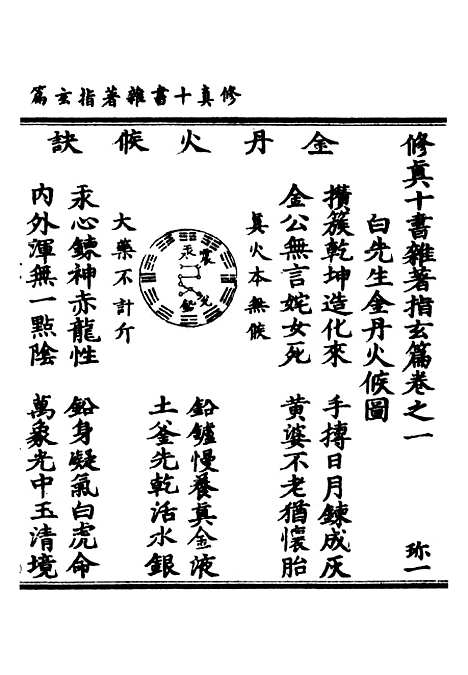 修真十書雜著指玄篇
修真十書雜著指玄篇卷之一 珎一
白先生金丹火候圖
金丹火候訣
攢簇乾坤造化來 手摶日月鍊成灰
金公無言姹女死 黃婆不老猶懷胎
真火本無候
汞
鉛
大藥不計斤
鉛鑪慢養真金液
土釜先乾活水銀
汞心鍊神赤龍性 鉛身凝氣白虎命
內外渾無一點陰 萬象光中玉清境